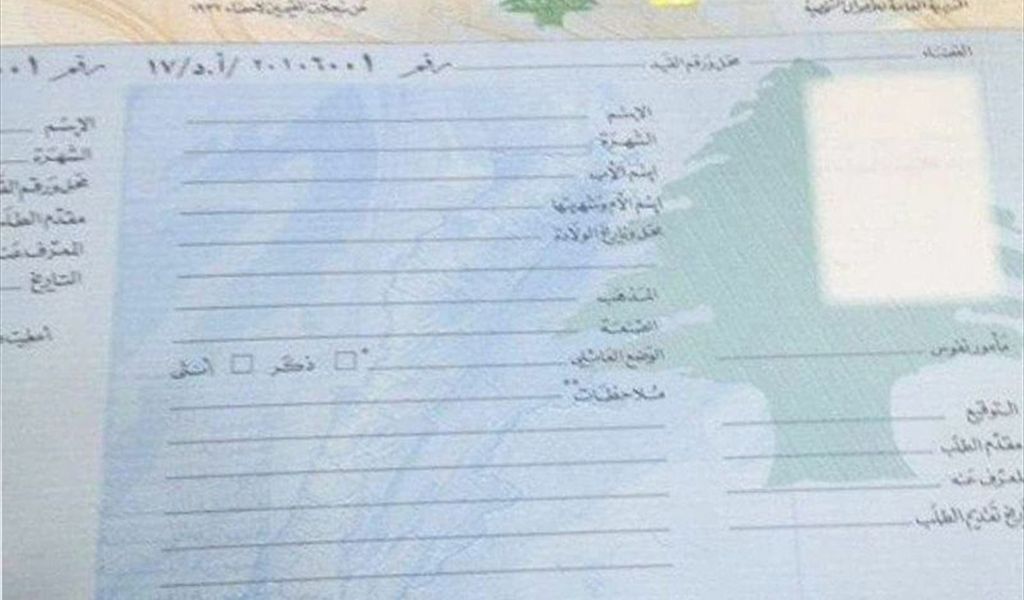 القضاء محل ورقم القيد رقم ٢٠١٠٦٠٠١ /أ.د/١٧ رقم
الإسم
الشهرة
إسم الأب
إسم الأم وشهرتها
محل وتاريخ الولادة
المذهب
الصنعة
الوضع العائلي * ذكر أنثى
ملاحظات **
مأمور نفوس
التوقيع
مقدّم الطلب
المعرّف عنه
تاريخ تقديم الطلب
الإسم
الشهرة
محل ورقم
مقدّم الطلب
المعرّف
التاريخ